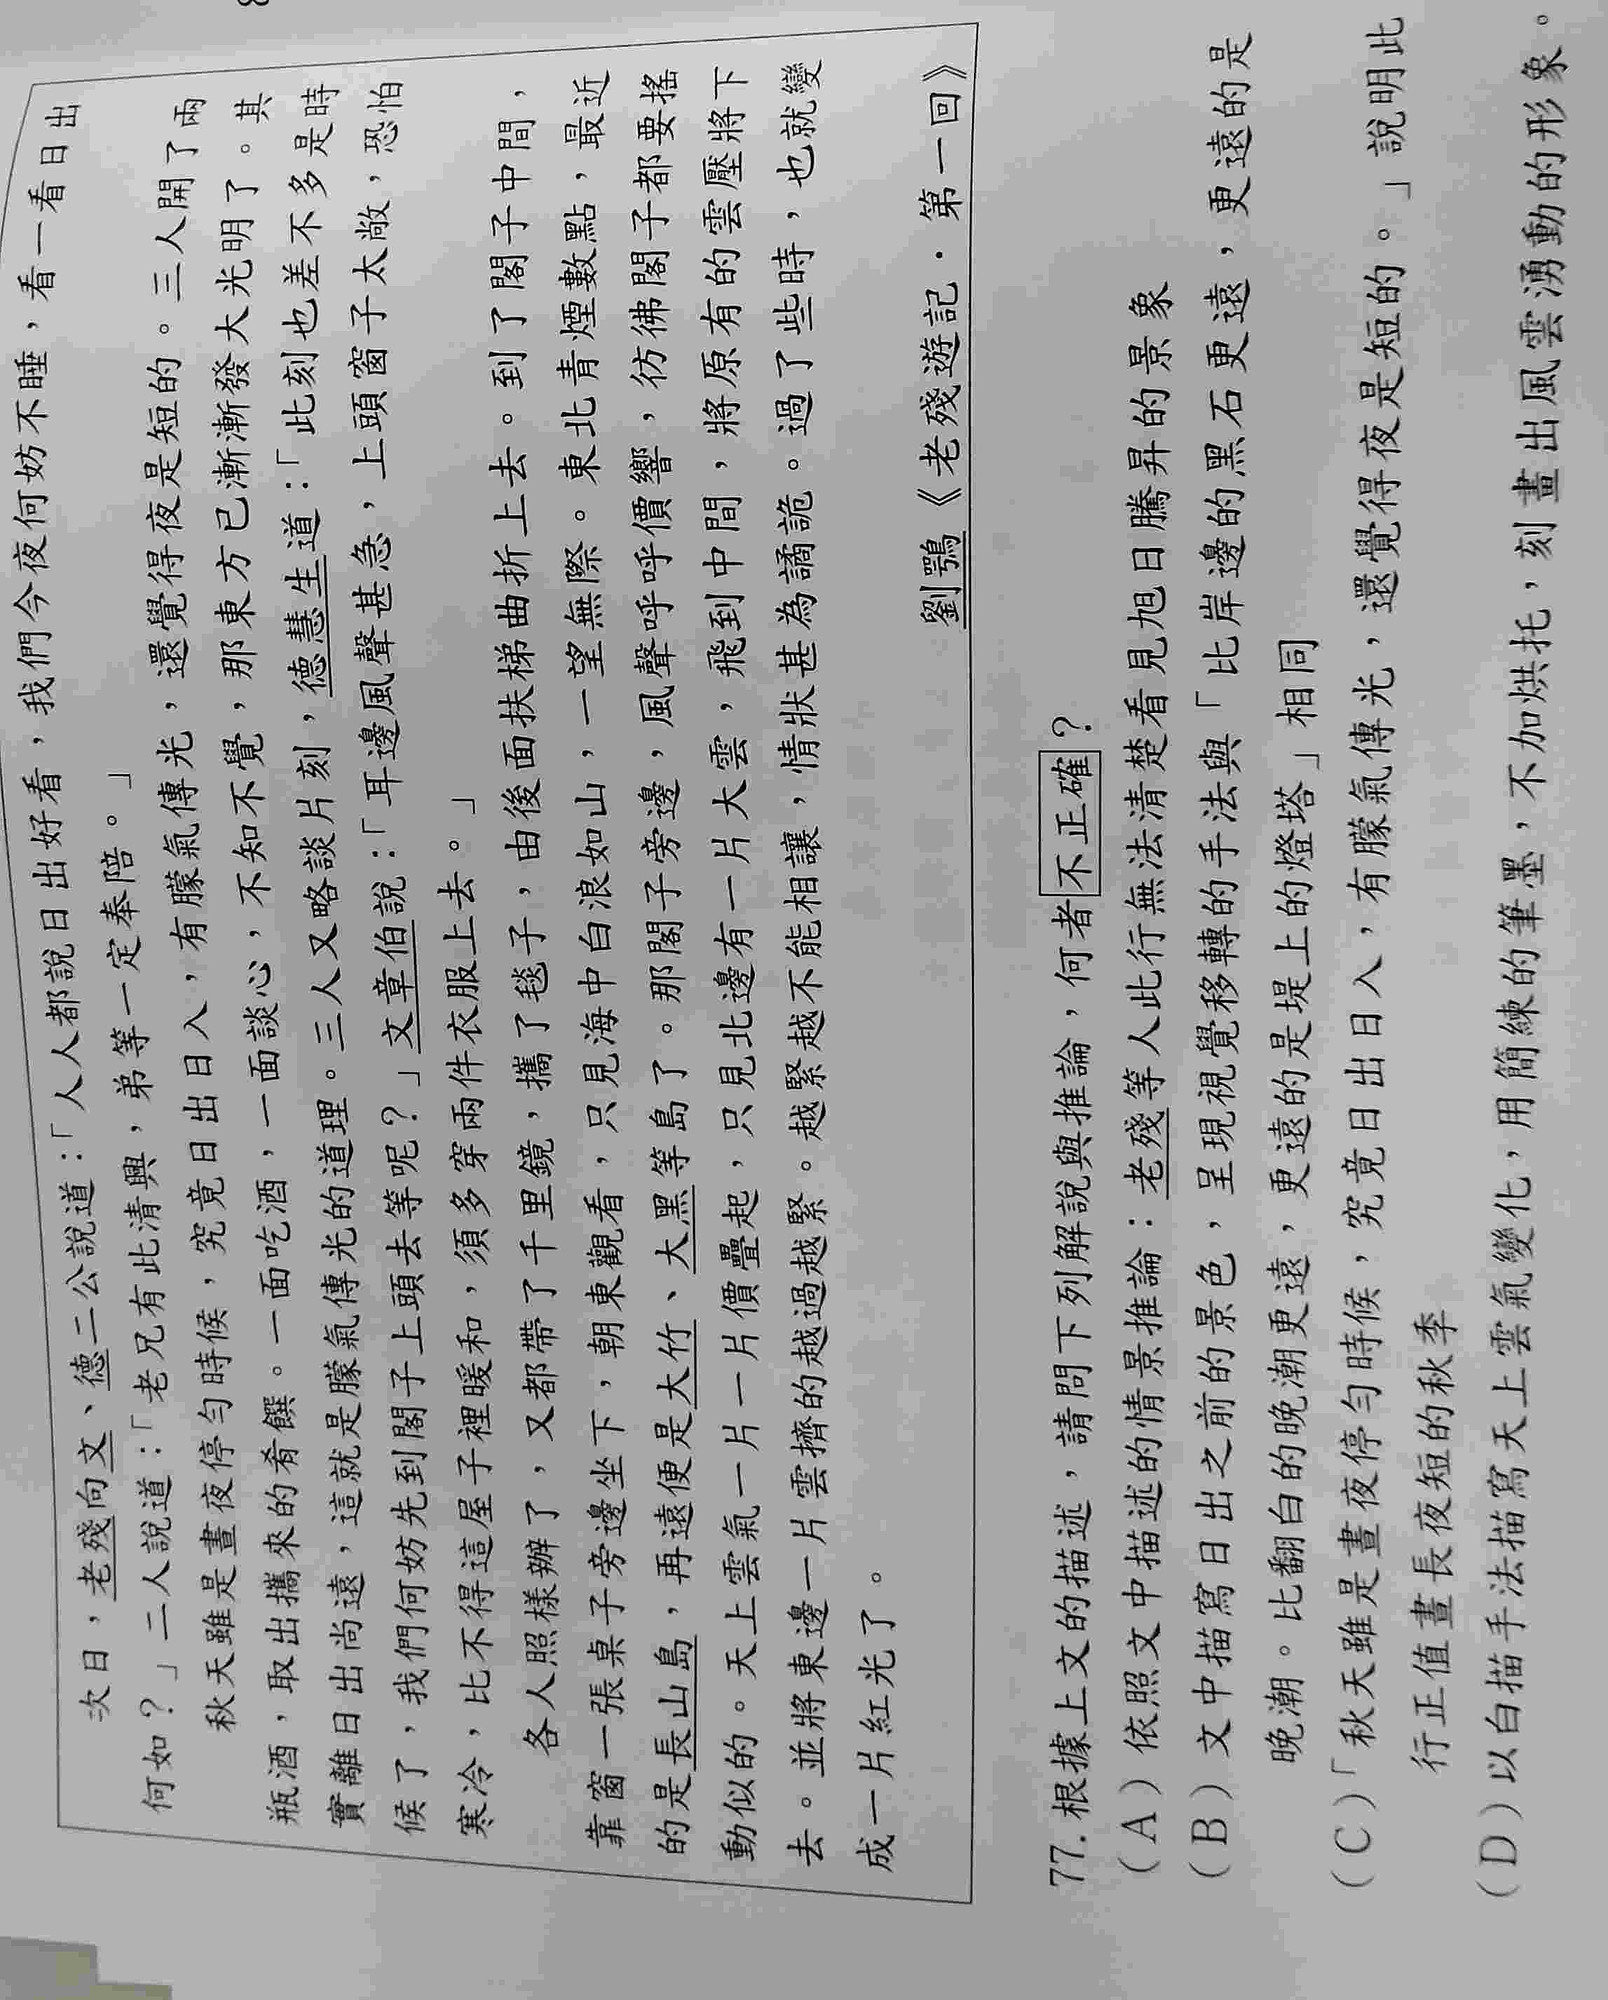 次日，老殘向文、德二公說道：「人人都說日出好看，我們今夜何妨不睡，看一看日出
何如？」二人說道：「老兄有此清興，弟等一定奉陪。」
秋天雖是晝夜停勻時候，究竟日出日入，有朦氣傳光，還覺得夜是短的。三人開了兩
瓶酒，取出攜來的肴饌。一面吃酒，一面談心，不知不覺，那東方已漸漸發大光明了。其
實離日出尚遠，這就是朦氣傳光的道理。三人又略談片刻，德慧生道：「此刻也差不多是時
候了，我們何妨先到閣子上頭去等呢？」文章伯說：「耳邊風聲甚急，上頭窗子太敞，恐怕
寒冷，比不得這屋子裡暖和，須多穿兩件衣服上去。」
各人照樣辦了，又都帶了千里鏡，攜了毯子，由後面扶梯曲折上去。到了閣子中間，
靠窗一張桌子旁邊坐下，朝東觀看，只見海中白浪如山，一望無際。東北青煙數點，最近
的是長山島，再遠便是大竹、大黑等島了。那閣子旁邊，風聲呼呼價響，彷彿閣子都要搖
動似的。天上雲氣一片一片價疊起，只見北邊有一片大雲，飛到中間，將原有的雲壓將下
去。並將東邊一片雲擠的越過越緊。越緊越不能相讓，情狀甚為譎詭。過了些時，也就變
成一片紅光了。
劉鶚《老殘遊記．第一回》
77.根據上文的描述，請問下列解說與推論，何者不正確？
（A）依照文中描述的情景推論：老殘等人此行無法清楚看見旭日騰昇的景象
（B）文中描寫日出之前的景色，呈現視覺移轉的手法與「比岸邊的黑石更遠，更遠的是
晚潮。比翻白的晚潮更遠，更遠的是堤上的燈塔」相同
（C）「秋天雖是晝夜停勻時候，究竟日出日入，有朦氣傳光，還覺得夜是短的。」說明此
行正值晝長夜短的秋季
（D）以白描手法描寫天上雲氣變化，用簡練的筆墨，不加烘托，刻畫出風雲湧動的形象。